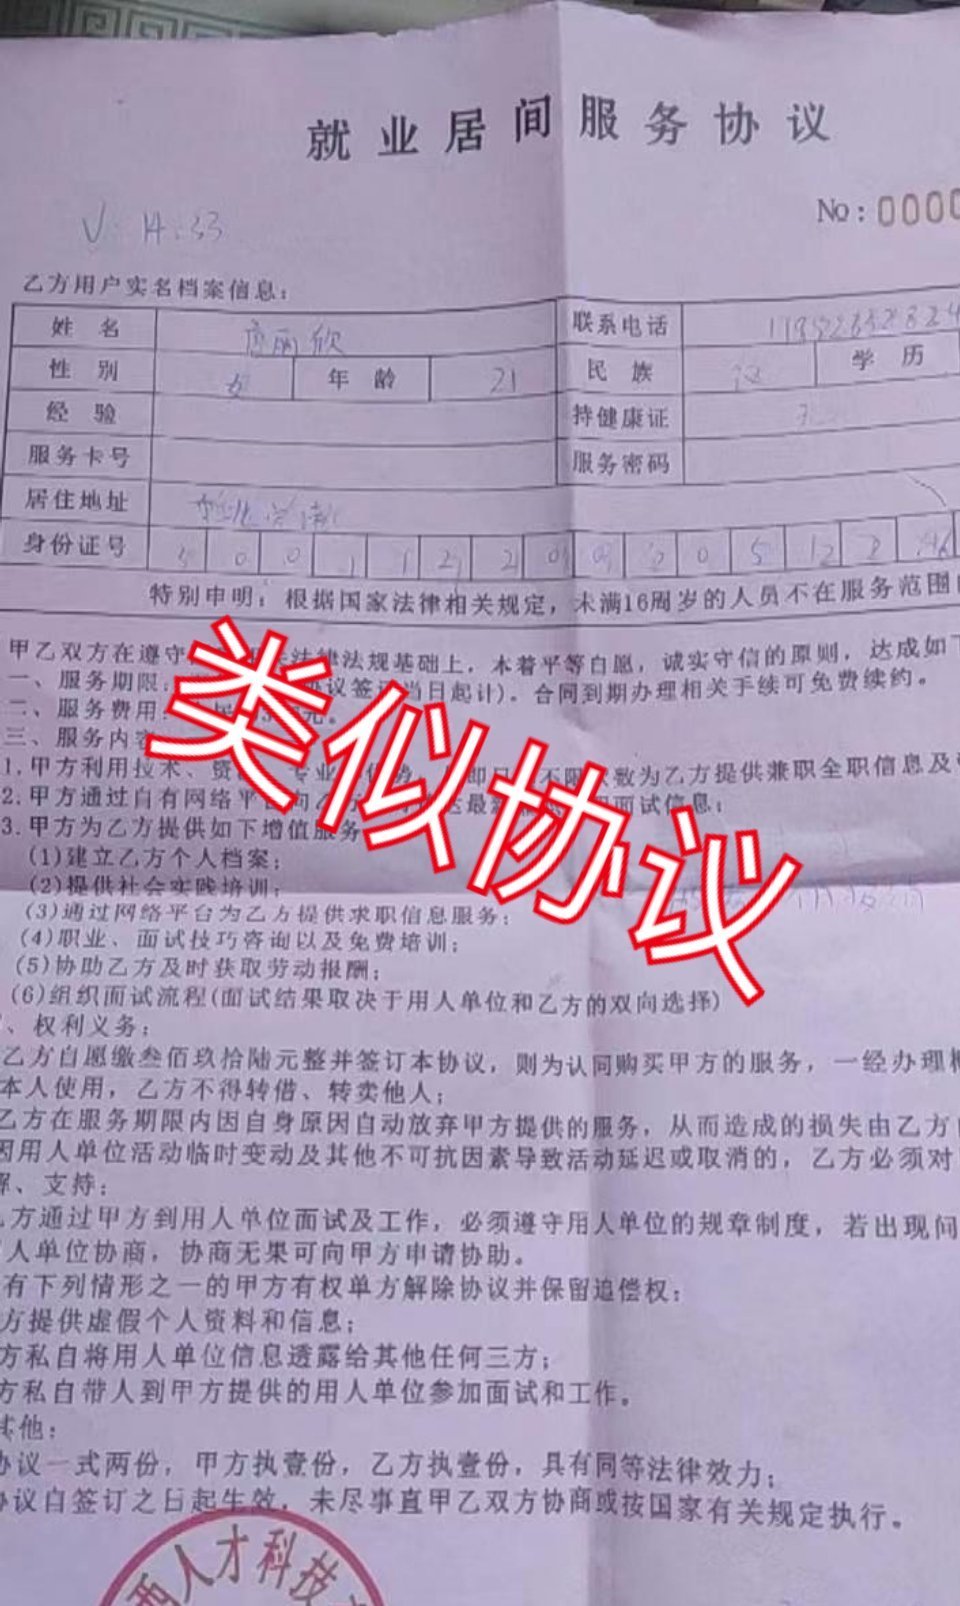 就业居间服务协议
No:0000
V 14:33
乙方用户实名档案信息:
姓 名 丽欣 联系电话
性 别 女 年 龄 21 民 族 汉 学 历
经 验 持健康证 无
服务卡号 服务密码
居住地址
身份证号
特别申明:根据国家法律相关规定,未满16周岁的人员不在服务范围
甲乙双方在遵守 法律法规基础上,本着平等自愿,诚实守信的原则,达成如下
一、服务期限: 协议签订当日起计)。合同到期办理相关手续可免费续约。
二、服务费用: 元。
三、服务内容
1.甲方利用技术、资 专业 优势 即日 不限次数为乙方提供兼职全职信息及
2.甲方通过自有网络平台向乙方 达最新 面试信息;
3.甲方为乙方提供如下增值服务
(1)建立乙方个人档案;
(2)提供社会实践培训;
(3)通过网络平台为乙方提供求职信息服务;
(4)职业、面试技巧咨询以及免费培训;
(5)协助乙方及时获取劳动报酬;
(6)组织面试流程(面试结果取决于用人单位和乙方的双向选择)
、权利义务:
乙方自愿缴叁佰玖拾陆元整并签订本协议,则为认同购买甲方的服务,一经办理
本人使用,乙方不得转借、转卖他人;
乙方在服务期限内因自身原因自动放弃甲方提供的服务,从而造成的损失由乙方
因用人单位活动临时变动及其他不可抗因素导致活动延迟或取消的,乙方必须对
解、支持;
乙方通过甲方到用人单位面试及工作,必须遵守用人单位的规章制度,若出现问
人单位协商,协商无果可向甲方申请协助。
有下列情形之一的甲方有权单方解除协议并保留追偿权:
方提供虚假个人资料和信息;
方私自将用人单位信息透露给其他任何三方;
方私自带人到甲方提供的用人单位参加面试和工作。
其他:
协议一式两份,甲方执壹份,乙方执壹份,具有同等法律效力;
协议自签订之日起生效,未尽事直甲乙双方协商或按国家有关规定执行。
人才科技
类似协议